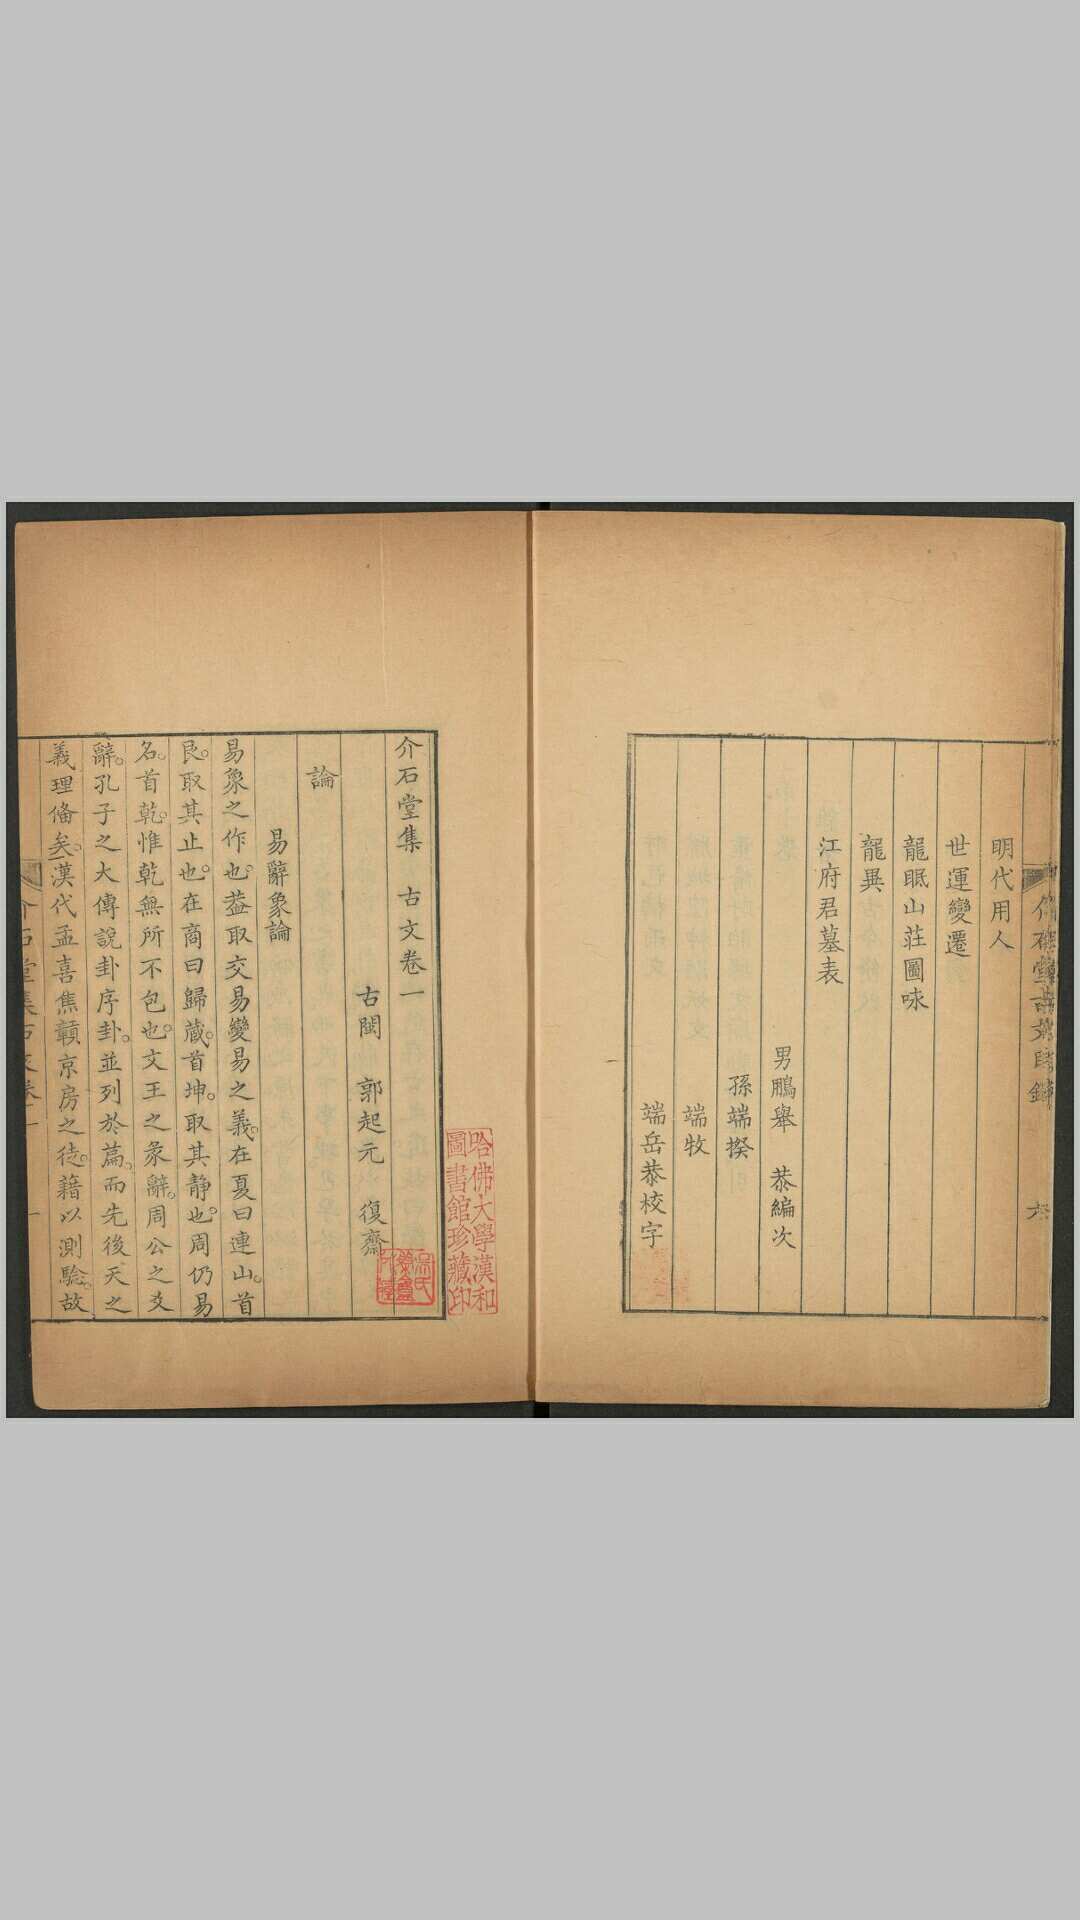 明代用人
世運變遷
龍眠山莊圖咏
龍異
江府君墓表
男鵬舉　恭編次
孫端揆
端牧
端岳恭校字
六
介石堂集　古文卷一
古閩　郭起元　復齋
論
易辭象論
易象之作也。葢取交易變易之義。在夏曰連山。首
艮。取其止也。在商曰歸藏。首坤。取其靜也。周仍易
名。首乾。惟乾無所不包也。文王之彖辭。周公之爻
辭。孔子之大傳說卦序卦。並列於篇。而先後天之
義理俻矣。漢代孟喜焦贛京房之徒。藉以測驗。故
哈佛大學漢和
圖書館珍藏印